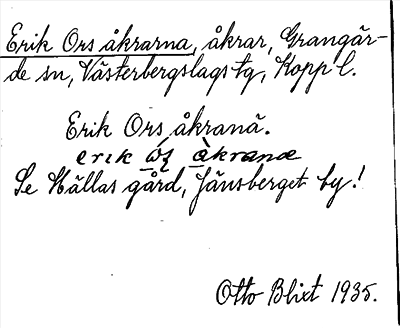 Erik Ors åkrarna, åkrar, Grangär-
de sn, Västerbergslags tg, Kopp l.
Erik Ors åkranä.
erik åkranæ
Se Hällas gård, Jänsberget by!
Otto Blixt 1935.